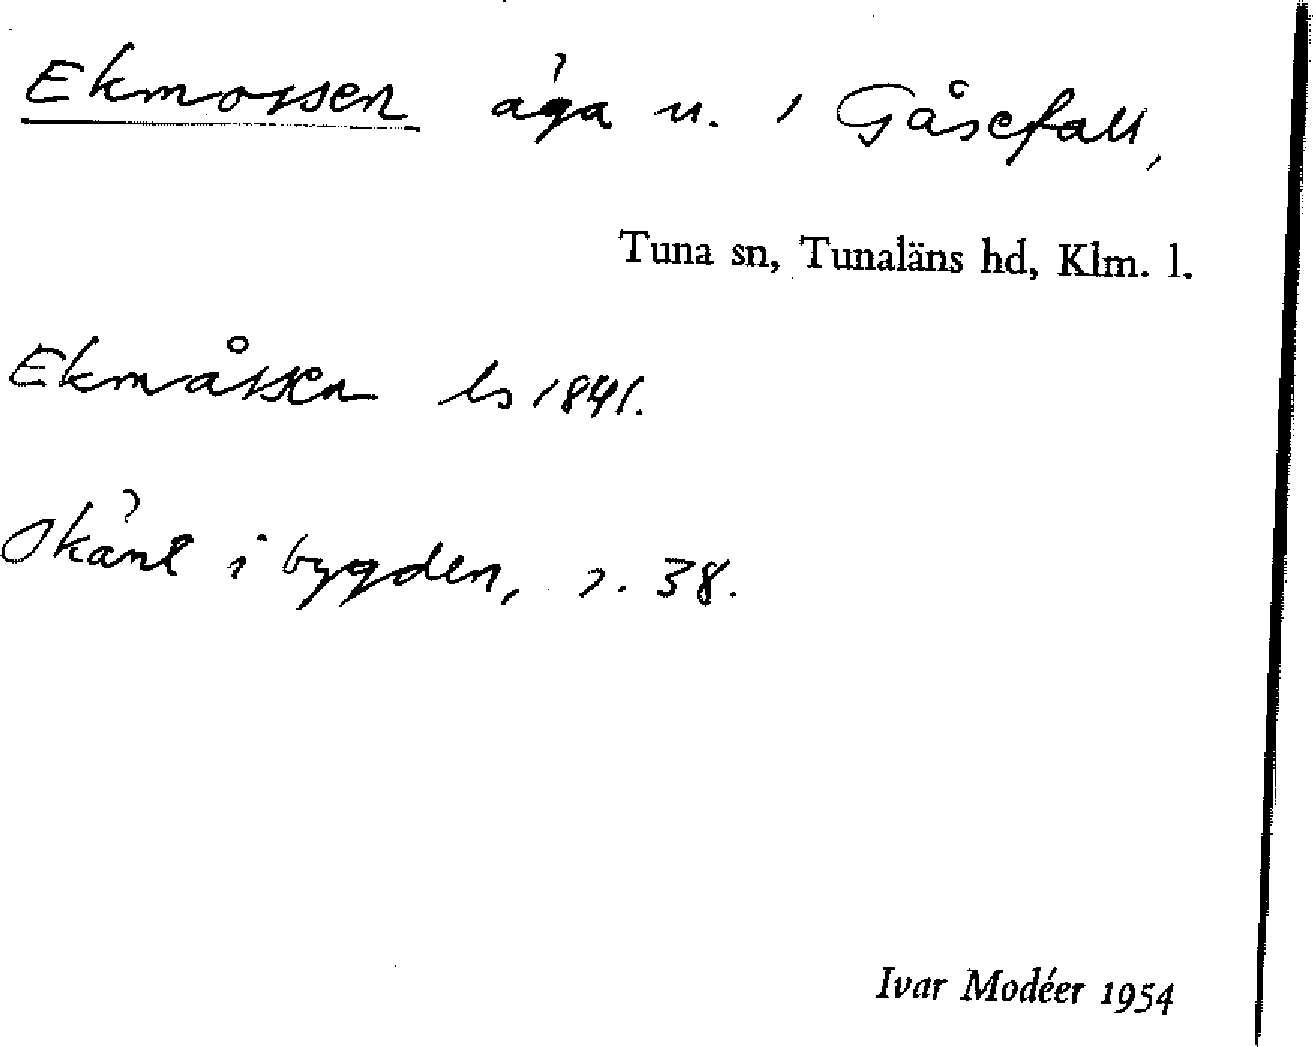 Ekmossen äga u. i Gåsefall,
Tuna sn, Tunaläns hd, Klm. l.
Ekmåssen ls 1841.
Känt i bygden, s. 38.
Ivar Modéer 1954